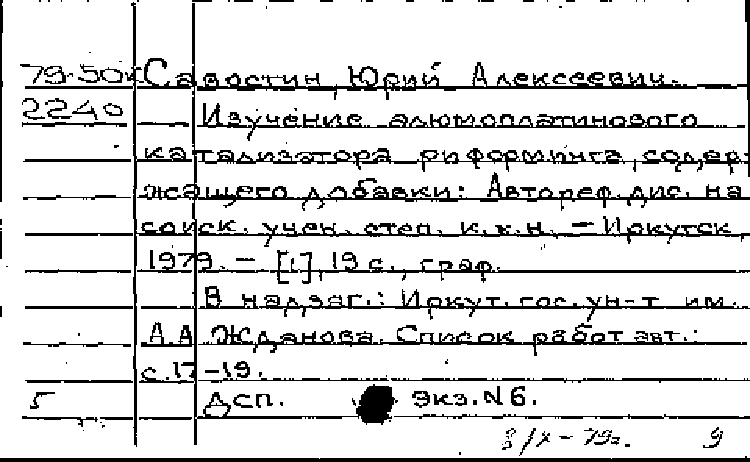 79-50к Савостин, Юрий Алексеевич.
2240 Изучение алюмоплатинового
катализатора риформинга, содер-
жащего добавки: Автореф. дис. на
соиск. учен. степ. к.х.н. – Иркутск,
1979. – [1], 19 с., граф.
В надзаг.: Иркут. гос. ун-т им.
А.А Жданова. Список работ авт.:
с. 17-19.
5 Дсп. Экз. N 6.
8/X-79г. 9